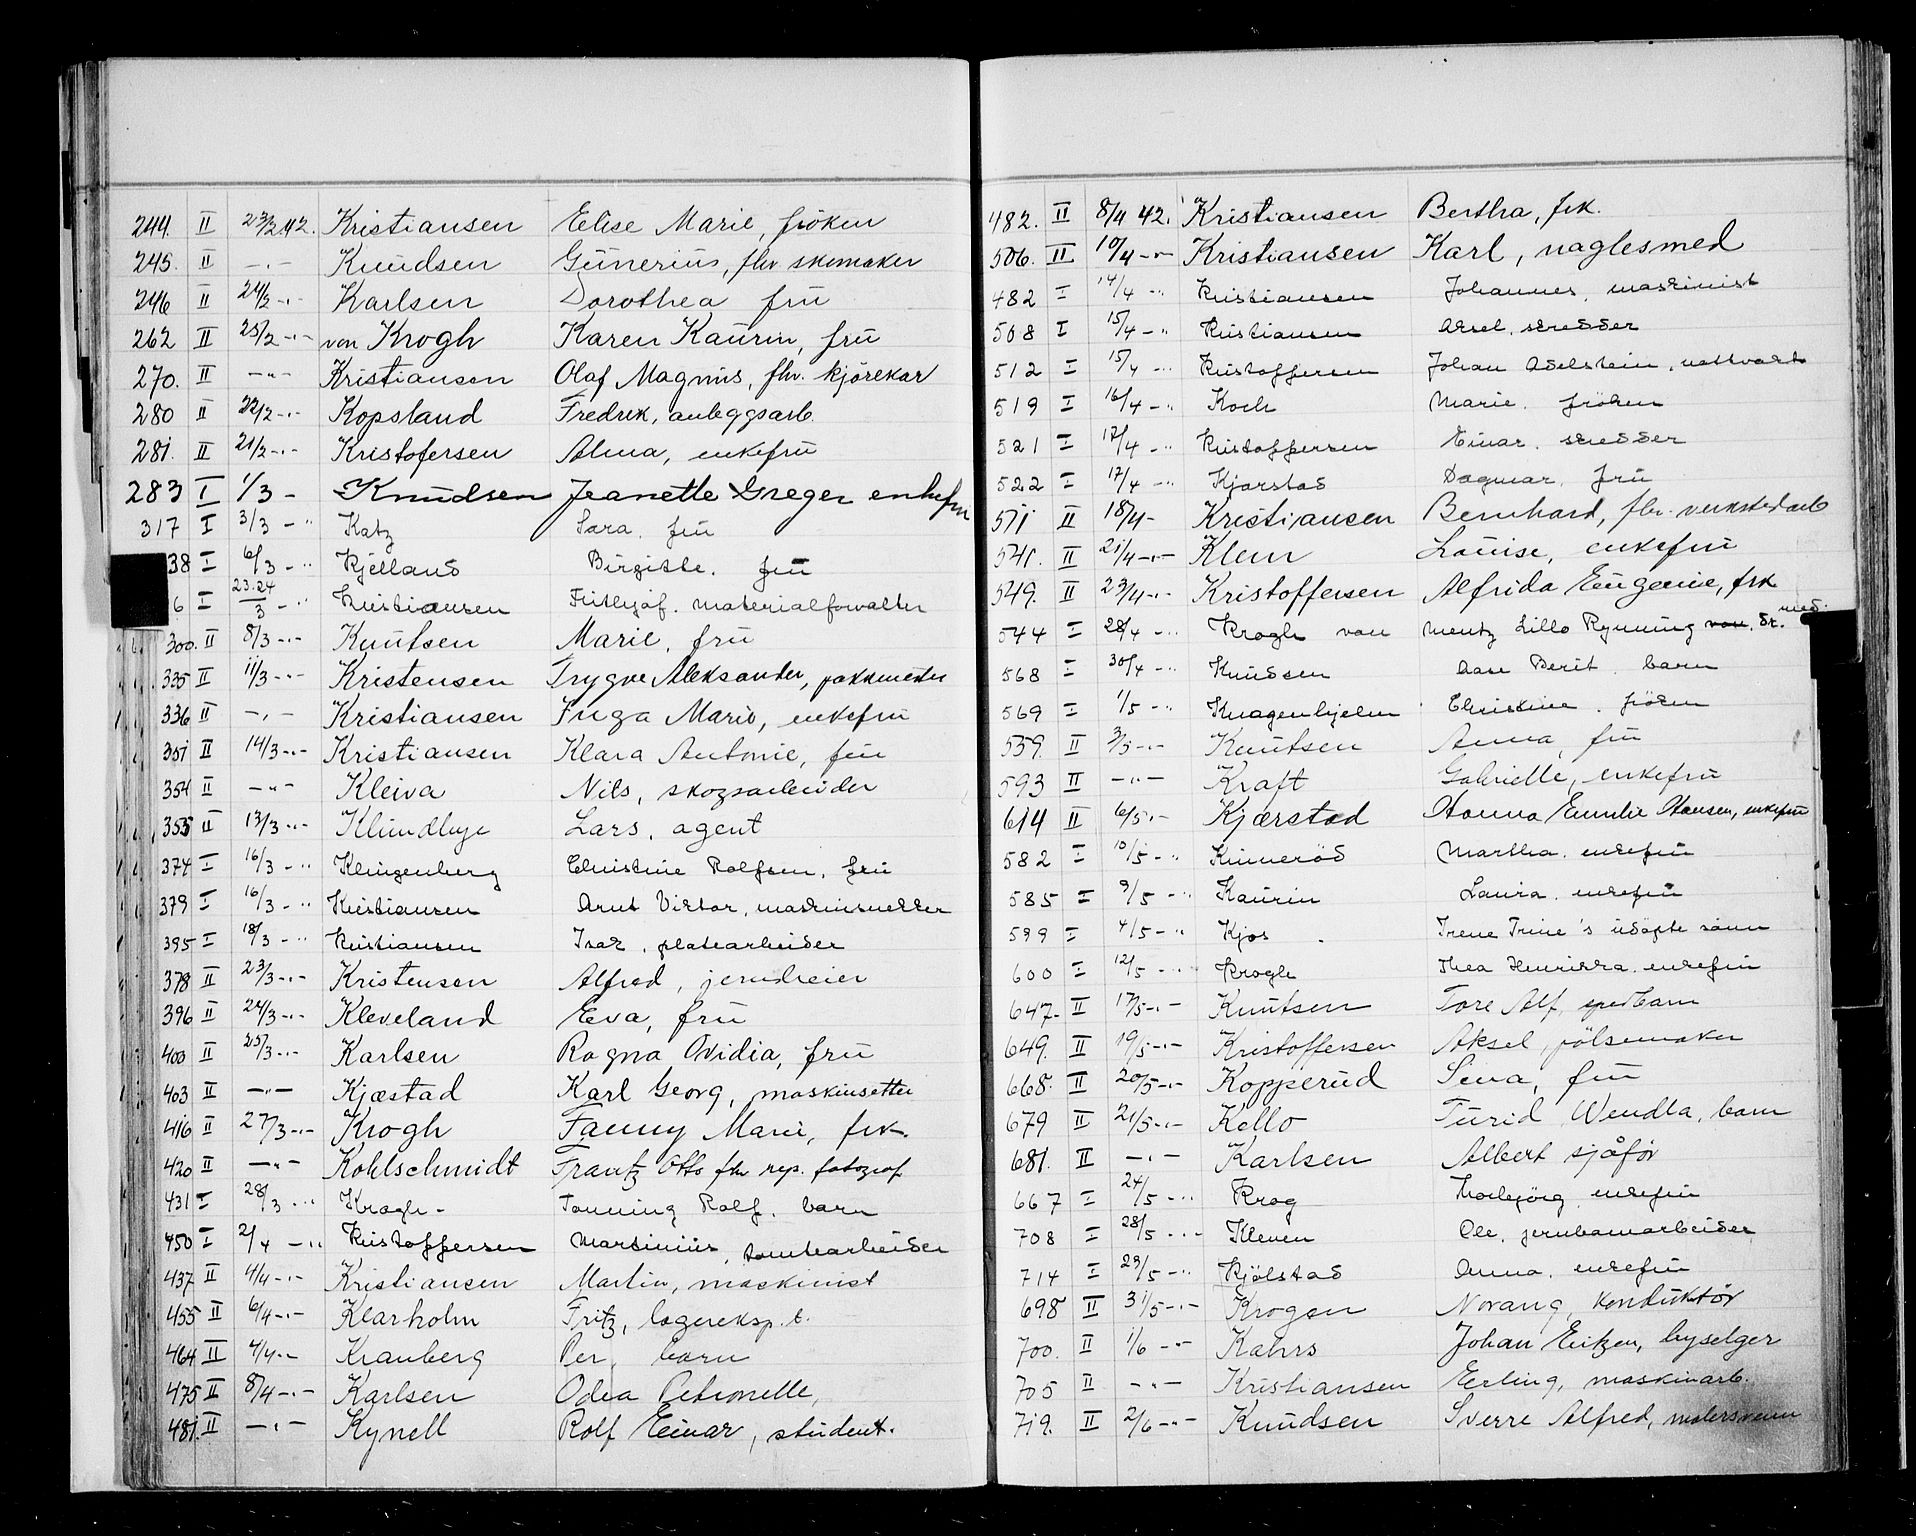 244. II 23/2 42. Kristiansen Elise Marie, fröken
245. II -"- Knudsen Gunerius, fhv skomaker
246 II 24/2 -"- Karlsen Dorothea fru
262 II 25/2 -"- von Krogh Karen Kaurin, fru
270. II -"- Kristiansen Olaf Magnus, fhv. kjörekar
280 II 22/2 -"- Kopsland Fredrik, anleggsarb.
281. II 21/2 -"- Kristofersen Alma, enkefru
283 I 1/3 - Knudsen Jeanette Greger enkefru
317 I 3/3 -"- Katz Sara, fru
38 I 6/3 -"- Kjelland Birgitte. fru
6 I 23.24/3 -"- Kristiansen Fritjof. materialforvalter
300. II 8/3 -"- Knutsen Marie, fru
335 II 11/3 -"- Kristensen Trygve Aleksander, pakkmester
336 II -"- Kristiansen Inga Marie, enkefru
351 II 14/3 -"- Kristiansen Klara Antonie, fru
354 II -"- Kleiva Nils, skogsarbeider
355 II 13/3 -"- Klundbye Lars, agent
374 I 16/3 -"- Klingenberg Christine Rolfsen, fru
379 I 16/3 -"- Kristiansen Arnt Viktor, maskinsnekker
395 I 18/3 -"- Kristiansen Isak, platearbeider
378 II 23/3 -"- Kristensen Alfred, jerndreier
396 II 24/3 -"- Kleveland Eva, fru
400 II 25/3 -"- Karlsen Ragna Ovidia, fru
403 II -"- Kjæstad Karl Georg, maskinsetter
416 II 27/3 -"- Krogh Fanny Marie, frk.
420 II -"- Kohlschmidt Frantz Otto fhv rep. fotograf
431 I 28/3 -"- Krogh - Tonning Rolf. barn
450 I 2/4 -"- Kristoffersen Martinius, tomtearbeider
437 II 4/4 -"- Kristiansen Martin, maskinist
455 II 6/4 -"- Klarholm Fritz, lagereksp.t.
464 II 4/4 -"- Kranberg Per, barn
475 II 8/4 -"- Karlsen Odea Petronelle,
481. II -"- Kynell Rolf Einar, student.
482. II 8/4 42. Kristiansen Bertha, frk.
506. II 10/4 -"- Kristiansen Karl, naglesmed
482 I 14/4 -"- Kristiansen Johannes, maskinist
508 I 15/4 -"- Kristiansen Aksel. skredder
512 I 15/4 -"- Kristoffersen Johan Adelstein, nattvakt
519 I 16/4 -"- Koch Marie. fröken
521 I 17/4 -"- Kristoffersen Einar. skredder
522 I 17/4 -"- Kjorstad Dagmar. fru
511 II 18/4 - Kristiansen Bernhard, fhv. verkstedarb
541. II 21/4 -"- Klem Louise, enkefru
549. II 23/4 -"- Kristoffersen Alfrida Eugenie, frk
544 I 28/4 -"- Krogh von Mentz Lillo Rynning von. dr. med.
568 I 30/4 -"- Knudsen Aase Berit. barn
569 I 1/5 -"- Knagenhjelm Christine. fröken
559. II 3/5 -"- Knutsen Anna, fru
593 II -"- Kraft Gabrielle, enkefru
614 II 6/5 -"- Kjærstad Hanna Emilie Hansen, enkefru
582 I 10/5 -"- Kimeröd Martha. enkefru
585 I 9/5 -"- Kaurin Laura. enkefru
599 I 4/5 -"- Kjos Irene Trine's udöpte sönn
600 I 12/5 -"- Krogh Thea Henrikka. enkefru
647. II 17/5 -"- Knutsen Tore Alf, spedbarn
649. II 19/5 -"- Kristoffersen Aksel, pölsemaker
668. II 20/5 -"- Kopperud Sina, fru
679 II 21/5 -"- Kello Turid Wendla, barn
681. II -"- Karlsen Albert sjåför
667 I 24/5 -"- Krog Thorbjörg, enkefru
708 I 28/5 -"- Kleven Ole, jernbanearbeider
714 I 29/5 -"- Kjölstad Anna, enkefru
698 II 31/5 -"- Krogen Norang, konduktör
700. II 1/6 -"- Kahrs Johan Eitzen, byselger
705 II -"- Kristiansen Erling, maskinarb.
719. II 2/6 -"- Knudsen Sverre Alfred, malersvenn